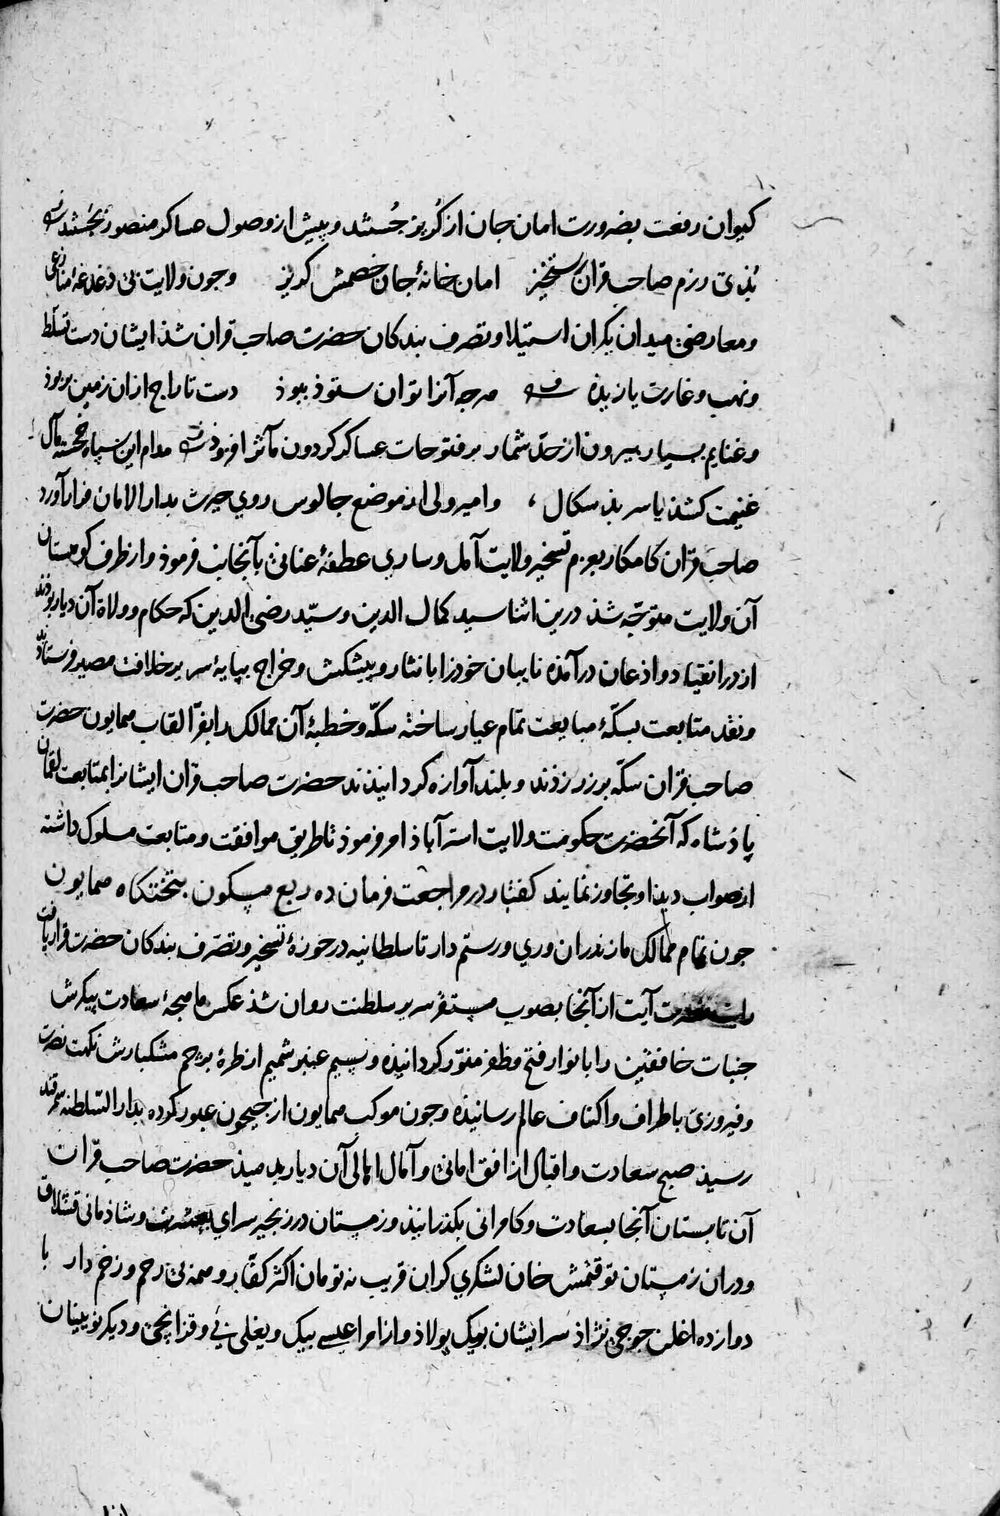 کیوان رفعت بضرورت امان جان از کریز جستند و پیش از وصول عساکر منصور بجستند
بذی رزم صاحب قران رستخیز امان خانهٔ جان خصمش کریز و جون ولایت بی دغدغهٔ منازعی
و معارضی میدان یکران استیلا و تصرف بندکان حضرت صاحب قران شذ ایشان دست تسلط
و نهب و غارت یازیذه هرجه آنرا توان ستوذ ببوذ دست تاراج ازان زمین بربوذ
و غنایم بسیار بیرون از حدّ شمار بر فتوحات عساکر کردون مآثر افزوذ مدام این سپاه خجسته مآل
غنیمت کشذ یا سر بذ سکال ، و امیر ولی از موضع جالوس روی حیرت بدار الامان فرار آورد
صاحب قران کامکار بعزم تسخیر ولایت آمل و ساری عطفهٔ عنانی بآنجانب فرموذ و از طرف کوهستان
آن ولایت متوجّه شذ درین اثنا سید کمال الدین و سیّد رضی الدین که حکام و ولاة آن دیار بوذند
از در انقیاد و اذعان درآمذه نایبان خوذ را با نثار و پیشکش و خراج بپایهٔ سریر خلافت مصیر فرستاذند
و نقد متابعت بسکّهٔ مبایعت تمام عیار ساخته سکّه و خطبهٔ آن ممالک را بفرّ القاب همایون حضرت
صاحب قران سکّه بر زر زذند و بلند آوازه کردانیذند حضرت صاحب قران ایشانرا بمتابعت لقمان
پاذشاه که آنحضرت حکومت ولایت استرآباذ امر فرموذ تا طریق موافقت و متابعت مسلوک داشته
از صواب دید او تجاوز نمایند کفتار در مراجعت فرمان ده ربع مسکون بتختکاه همایون
جون تمام ممالک مازندران و ری و رستم دار تا سلطانیه در حوزهٔ تسخیر و تصرّف بندکان حضرت قرار یافت
رایت نصرت آیت از آنجا بصوب مستقر سریر سلطنت روان شذ عکس ماهجهٔ سعادت پیکرش
جنبات خافقین را بانوار فتح و ظفر منوّر کردانیذه و نسیم عنبر شمیم از طرهٔ پرجم مشکبارش نکهت نصرت
و فیروزی باطراف و اکناف عالم رسانیذه و جون موکب همایون از جیحون عبور کرده بدار السلطنه سمرقند
رسیذ صبح سعادت و اقبال از افق امانی و آمال اهالی آن دیار بدمیذ حضرت صاحب قران
آن تابستان آنجا بسعادت و کامرانی بکذرانیذ و زمستان در زنجیر سرای بعشرت و شاذمانی قشلاق
و دران زمستان توقتمش خان لشکری کران قریب نه تومان اکثر کفّار و همه بی رحم و زخم دار با
دوازده اغلن جوجی نژاذ سر ایشان بیک پولاذ و از امرا عیسی بیک و یغلی بی و قزانچی و دیکر نویینان